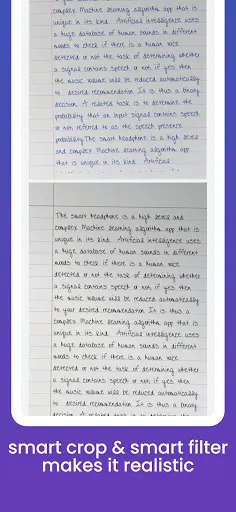 complex Machine learning algorithm app that is
unique in its kind. Artificial intelligence uses
a huge database of human sounds in different
moods to check if there is a human voice
detected or not the task of determining whether
a signal contains speech or not, if yes then
the music volume will be reduced automatically
to desired recommendation. It is thus a binary
decision. A related task is to determine the
probability that an input signal contains speech
or not referred to as the speech presence
probability The smart headphone is a high level
and complex Machine learning algorithm app
that is unique in its kind. Artificial
The smart headphone is a high level and
complex Machine learning algorithm app that is
unique in its kind. Artificial intelligence uses
a huge database of human sounds in different
moods to check if there is a human voice
detected or not the task of determining whether
a signal contains speech or not, if yes then
the music volume will be reduced automatically
to your desired recommendation It is thus a
complex Machine learning algorithm app that is
unique in its kind. Artificial intelligence uses
a huge database of human sounds in different
moods to check if there is a human voice
detected or not the task of determining whether
a signal contains speech or not, if yes then
the music volume will be reduced automatically
to desired recommendation. It is thus a binary
decision. A related task is to determine the
smart crop & smart filter
makes it realistic